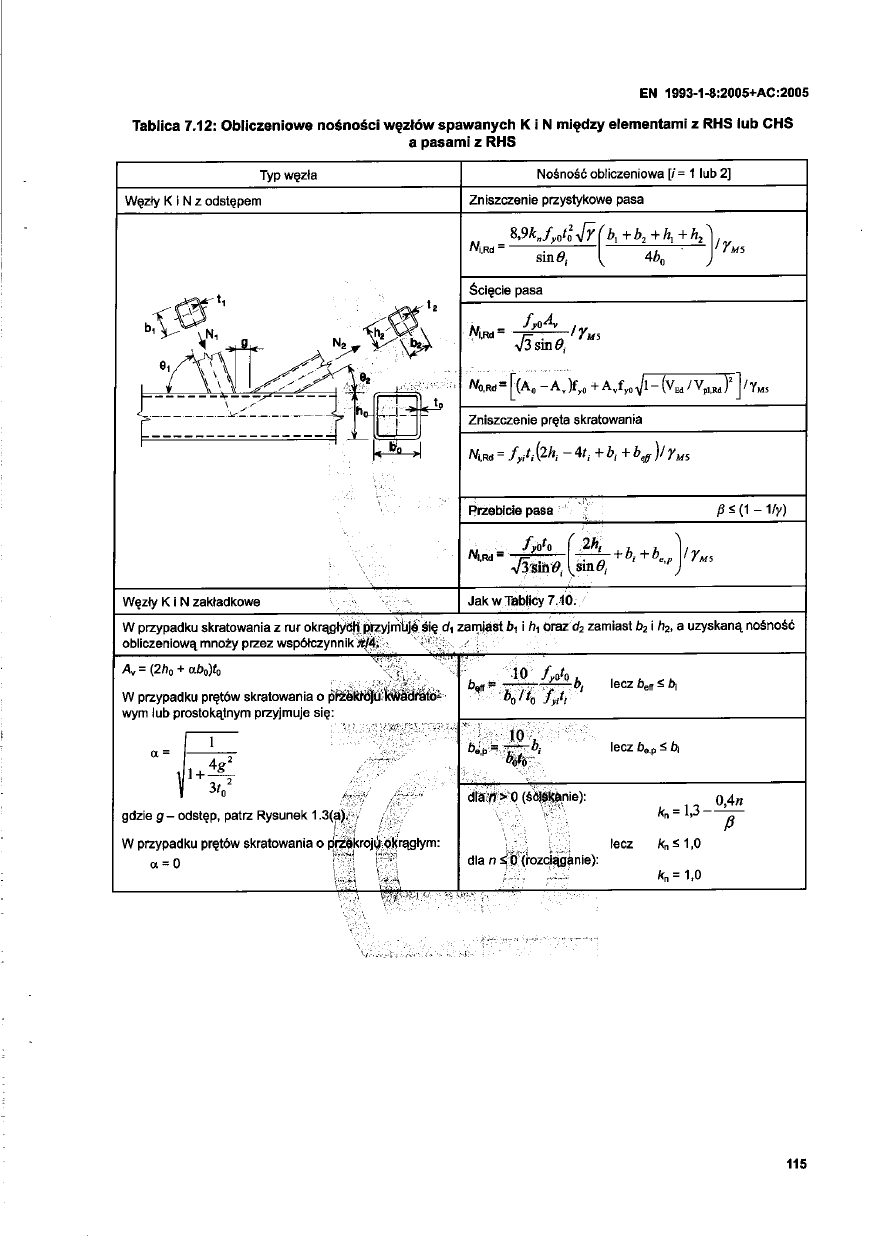 EN 1993-1-8:2005+AC:2005
Tablica 7.12: Obliczeniowe nośności węzłów spawanych K i N między elementami z RHS lub CHS
a pasami z RHS
Typ węzła
Nośność obliczeniowa [i = 1 lub 2]
Węzły K i N z odstępem
Zniszczenie przystykowe pasa
N_{i,Rd} = \frac{8,9k_n f_{y0} t_0^2 \sqrt{γ}}{sin θ_i} \left( \frac{b_1 + b_2 + h_1 + h_2}{4b_0} \right) / γ_{M5}
Ścięcie pasa
N_{i,Rd} = \frac{f_{y0} A_v}{\sqrt{3} sin θ_i} / γ_{M5}
N_{0,Rd} = [(A_0 – A_v)f_{y0} + A_v f_{y0} \sqrt{1 – (V_{Ed} / V_{pl,Rd})^2}] / γ_{M5}
Zniszczenie pręta skratowania
N_{i,Rd} = f_{yi} t_i (2h_i – 4t_i + b_i + b_{eff}) / γ_{M5}
Przebicie pasa β ≤ (1 – 1/γ)
N_{i,Rd} = \frac{f_{y0} t_0}{\sqrt{3} sin θ_i} \left( \frac{2h_i}{sin θ_i} + b_i + b_{e,p} \right) / γ_{M5}
t₁
b₁
N₁
g
θ₁
N₂
h₂
b₂
t₂
θ₂
h₀
t₀
b₀
Węzły K i N zakładkowe
Jak w Tablicy 7.10.
W przypadku skratowania z rur okrągłych przyjmuje się d₁ zamiast b₁ i h₁ oraz d₂ zamiast b₂ i h₂, a uzyskaną nośność
obliczeniową mnoży przez współczynnik π/4.
A_v = (2h₀ + αb₀)t₀
W przypadku prętów skratowania o przekroju kwadrato-
wym lub prostokątnym przyjmuje się:
α = \sqrt{\frac{1}{1 + \frac{4g^2}{3t_0^2}}}
gdzie g – odstęp, patrz Rysunek 1.3(a).
W przypadku prętów skratowania o przekroju okrągłym:
α = 0
b_{eff} = \frac{10}{b_0 / t_0} \frac{f_{y0} t_0}{f_{yi} t_i} b_i lecz b_{eff} ≤ b_i
b_{e,p} = \frac{10}{b_0 t_0} b_i lecz b_{e,p} ≤ b_i
dla n > 0 (ściskanie):
k_n = 1,3 – \frac{0,4n}{β}
lecz k_n ≤ 1,0
dla n ≤ 0 (rozciąganie):
k_n = 1,0
115